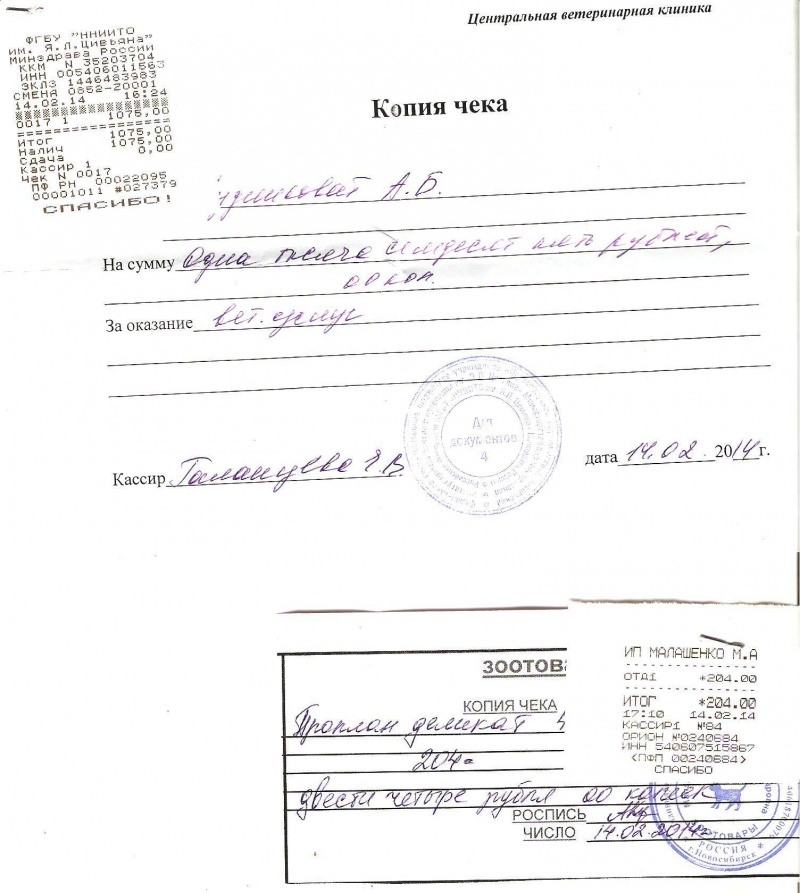 Центральная ветеринарная клиника
ФГБУ "ННИИТО
им. Я.Л.Цивьяна"
Минздрава России
ККМ N 35203704
ИНН 005406011563
ЭКЛЗ 1446483983
СМЕНА 0852-20001
14.02.14 16:24
0017 1 1075,00
Итог 1075,00
Налич 1075,00
Сдача 0,00
Кассир 1
Чек N 0017
ПФ РН 00022095
00001011 #027379
СПАСИБО!
Копия чека
А.Б.
На сумму Одна тысяча семдесят пять рублей,
00 коп.
За оказание вет. услуг
Для
документов
4
Кассир Галанцева Е.В
дата 14.02.2014г.
ЗООТОВА
КОПИЯ ЧЕКА
Проплан деликат
204=
двести четыре рубля 00 копеек
РОСПИСЬ
ЧИСЛО 14.02.2014г
ИП МАЛАШЕНКО М.А
ОТД1 *204.00
ИТОГ *204.00
17:10 14.02.14
КАССИР1 №84
ОРИОН №0240684
ИНН 540607515867
<ПФП 00240684>
СПАСИБО
РОССИЯ
г.Новосибирск